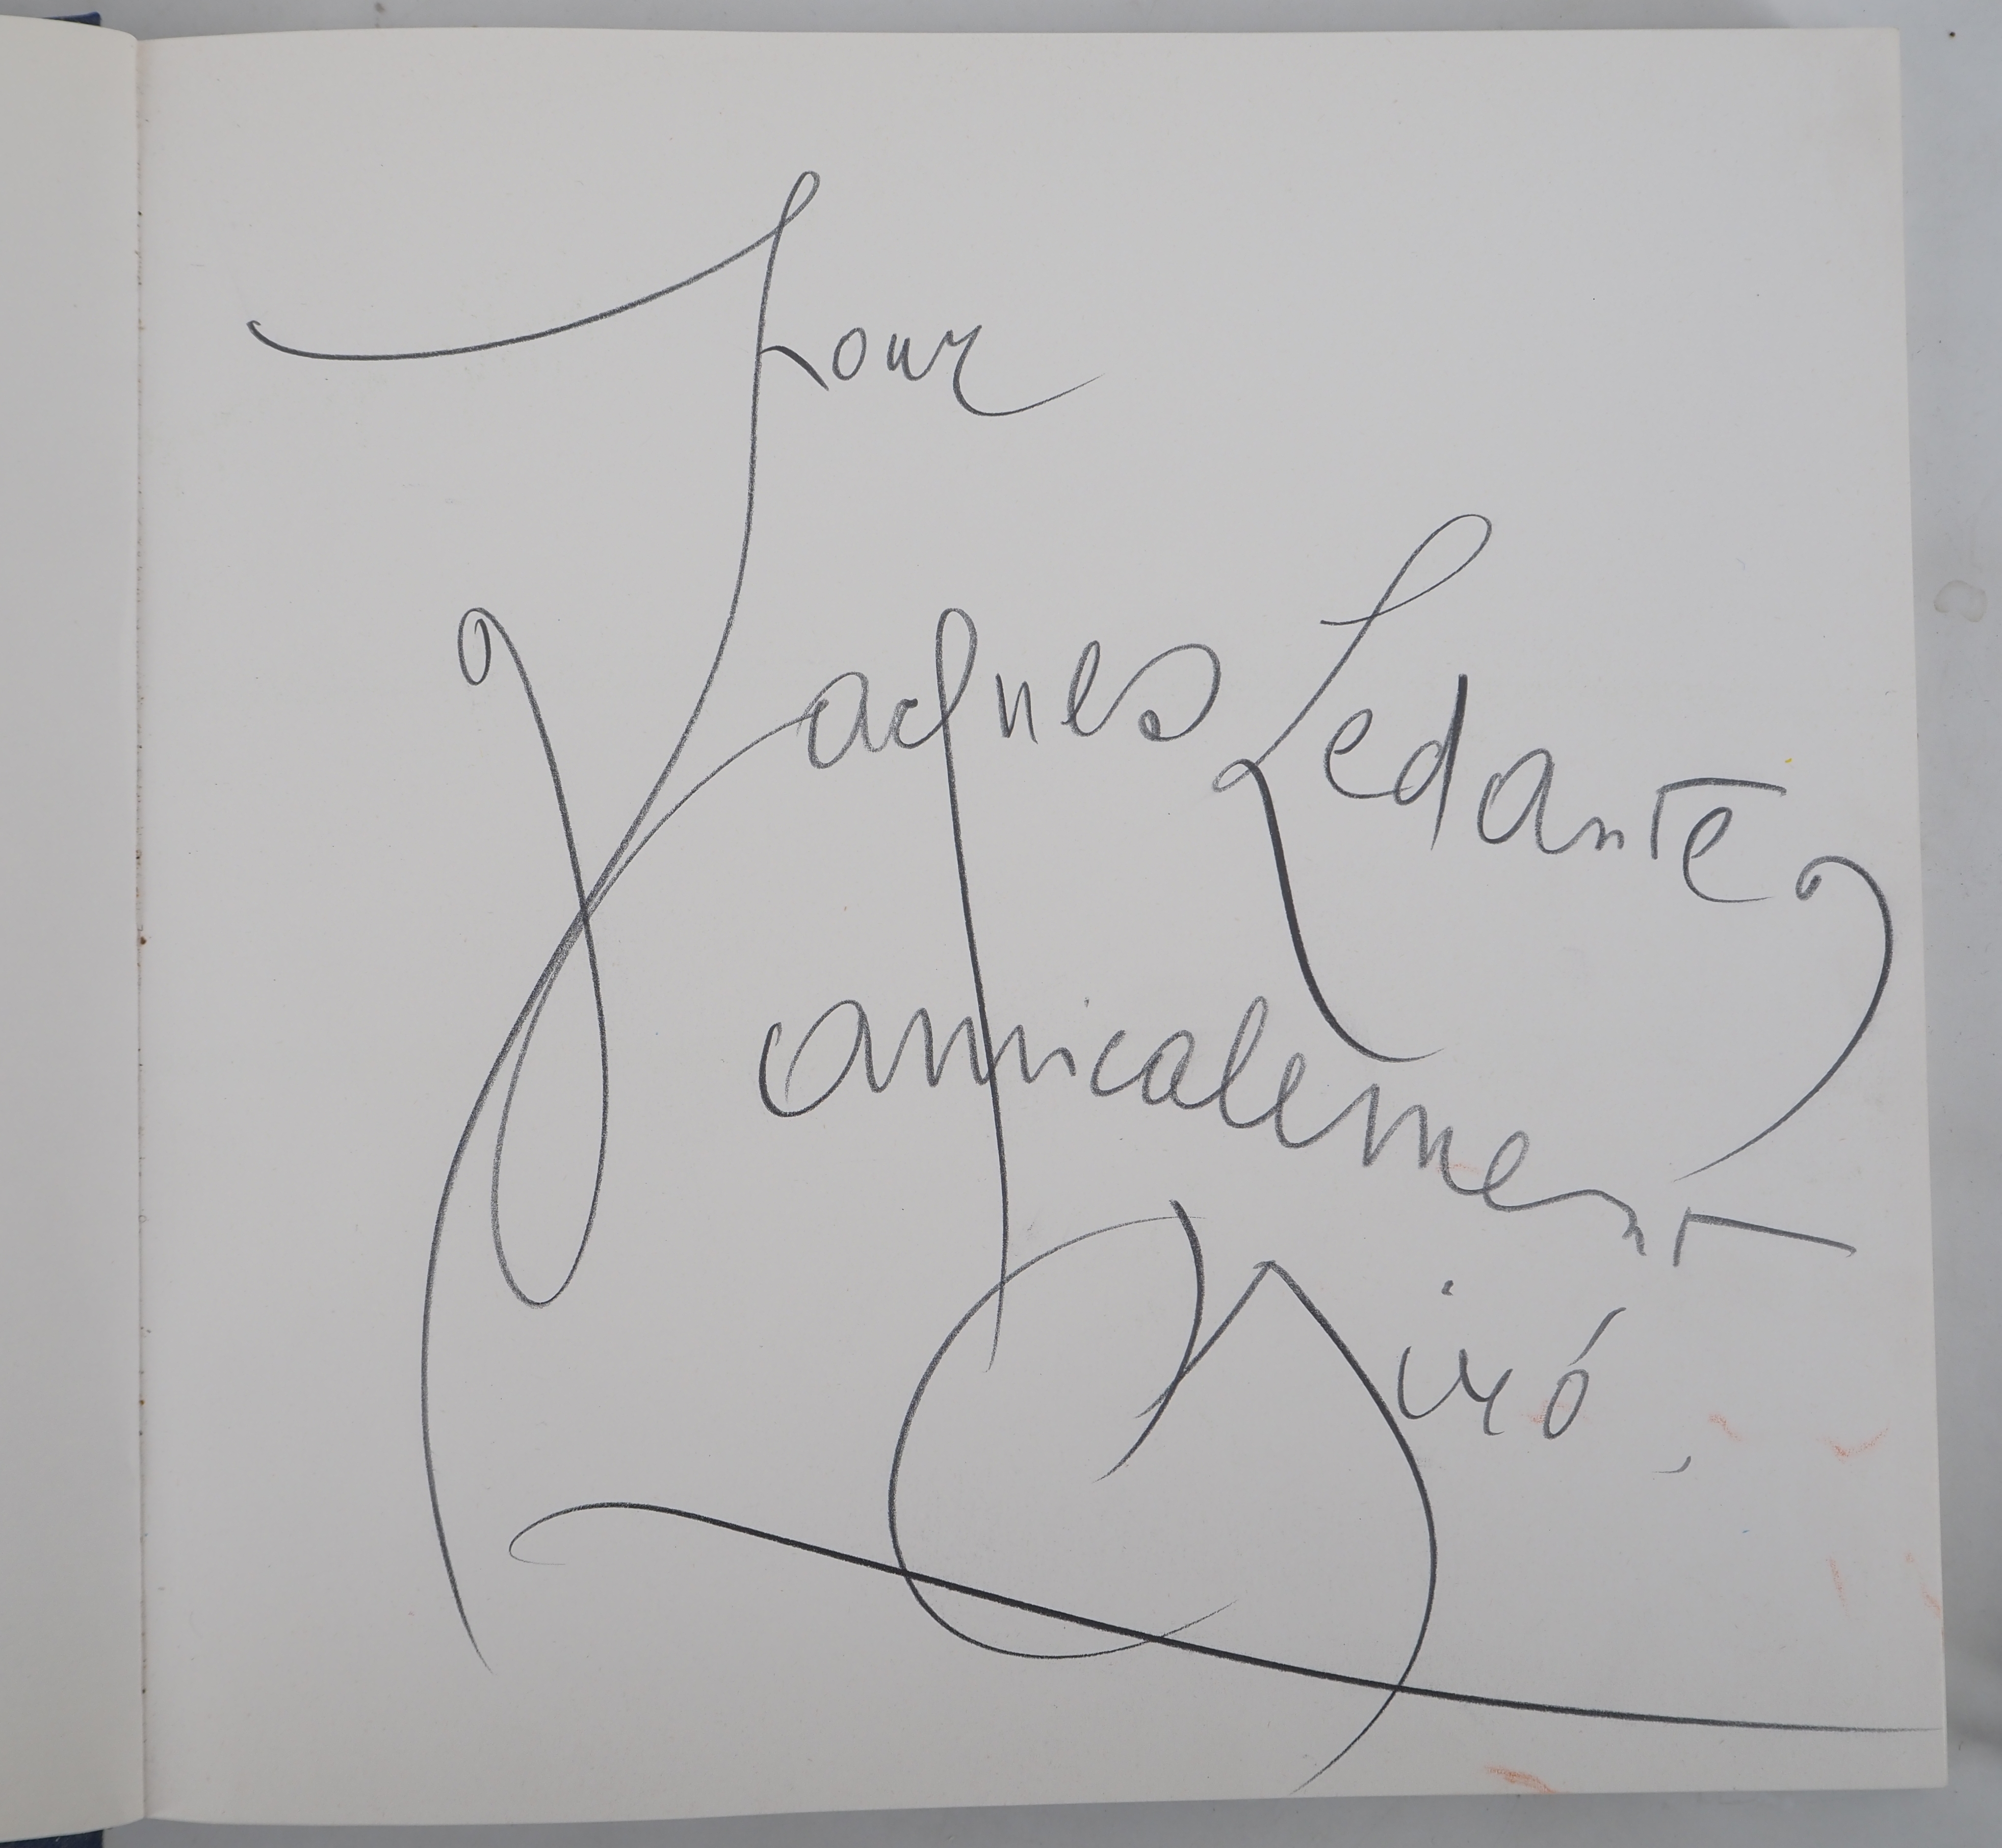 Pour
Jacques Ledantec
amicalement
Miró.